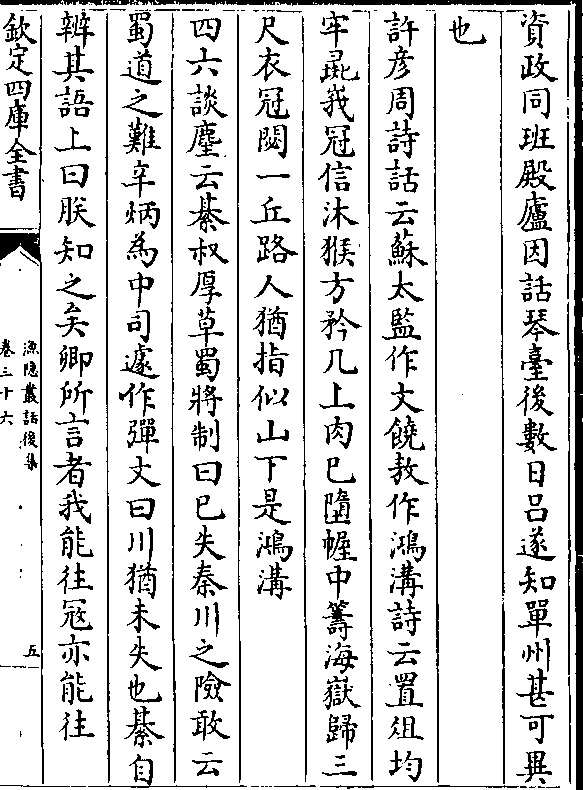 資政同班殿廬因話琴臺後數日吕遂知單州甚可異
也
許彦周詩話云蘇太監作文饒教作鴻溝詩云置俎均
牢羆峩冠信沐猴方矜几上肉已墮幄中籌海嶽歸三
尺衣冠閟一丘路人猶指似山下是鴻溝
四六談麈云綦叔厚草蜀將制曰已失秦川之險敢云
蜀道之難辛炳為中司遽作彈文曰川猶未失也綦自
辨其語上曰朕知之矣卿所言者我能往冦亦能往
欽定四庫全書
漁隠叢話後集
卷三十六
五